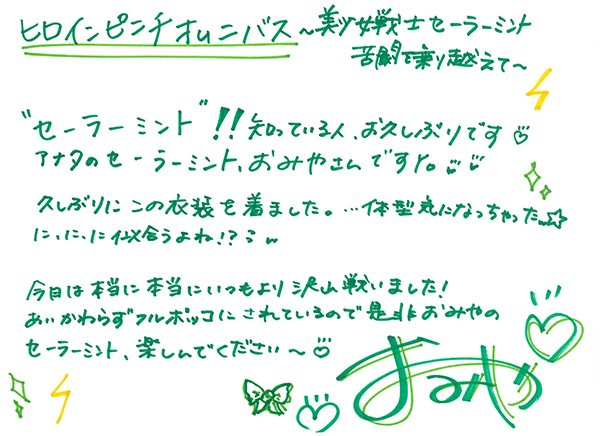 ヒロインピンチオムニバス～美少女戦士セーラーミント
苦闘を乗り越えて～
"セーラーミント"!! 知っている人、お久しぶりです♡
アナタのセーラーミント、おみやさんですよ。
久しぶりにこの衣装を着ました。…体型気になっちゃった…☆☆
に、に、に似合うよね!?
今日は本当に本当にいつもより沢山戦いました!
あいかわらずフルボッコにされているので是非おみやの
セーラーミント、楽しんでください～♡
おみや